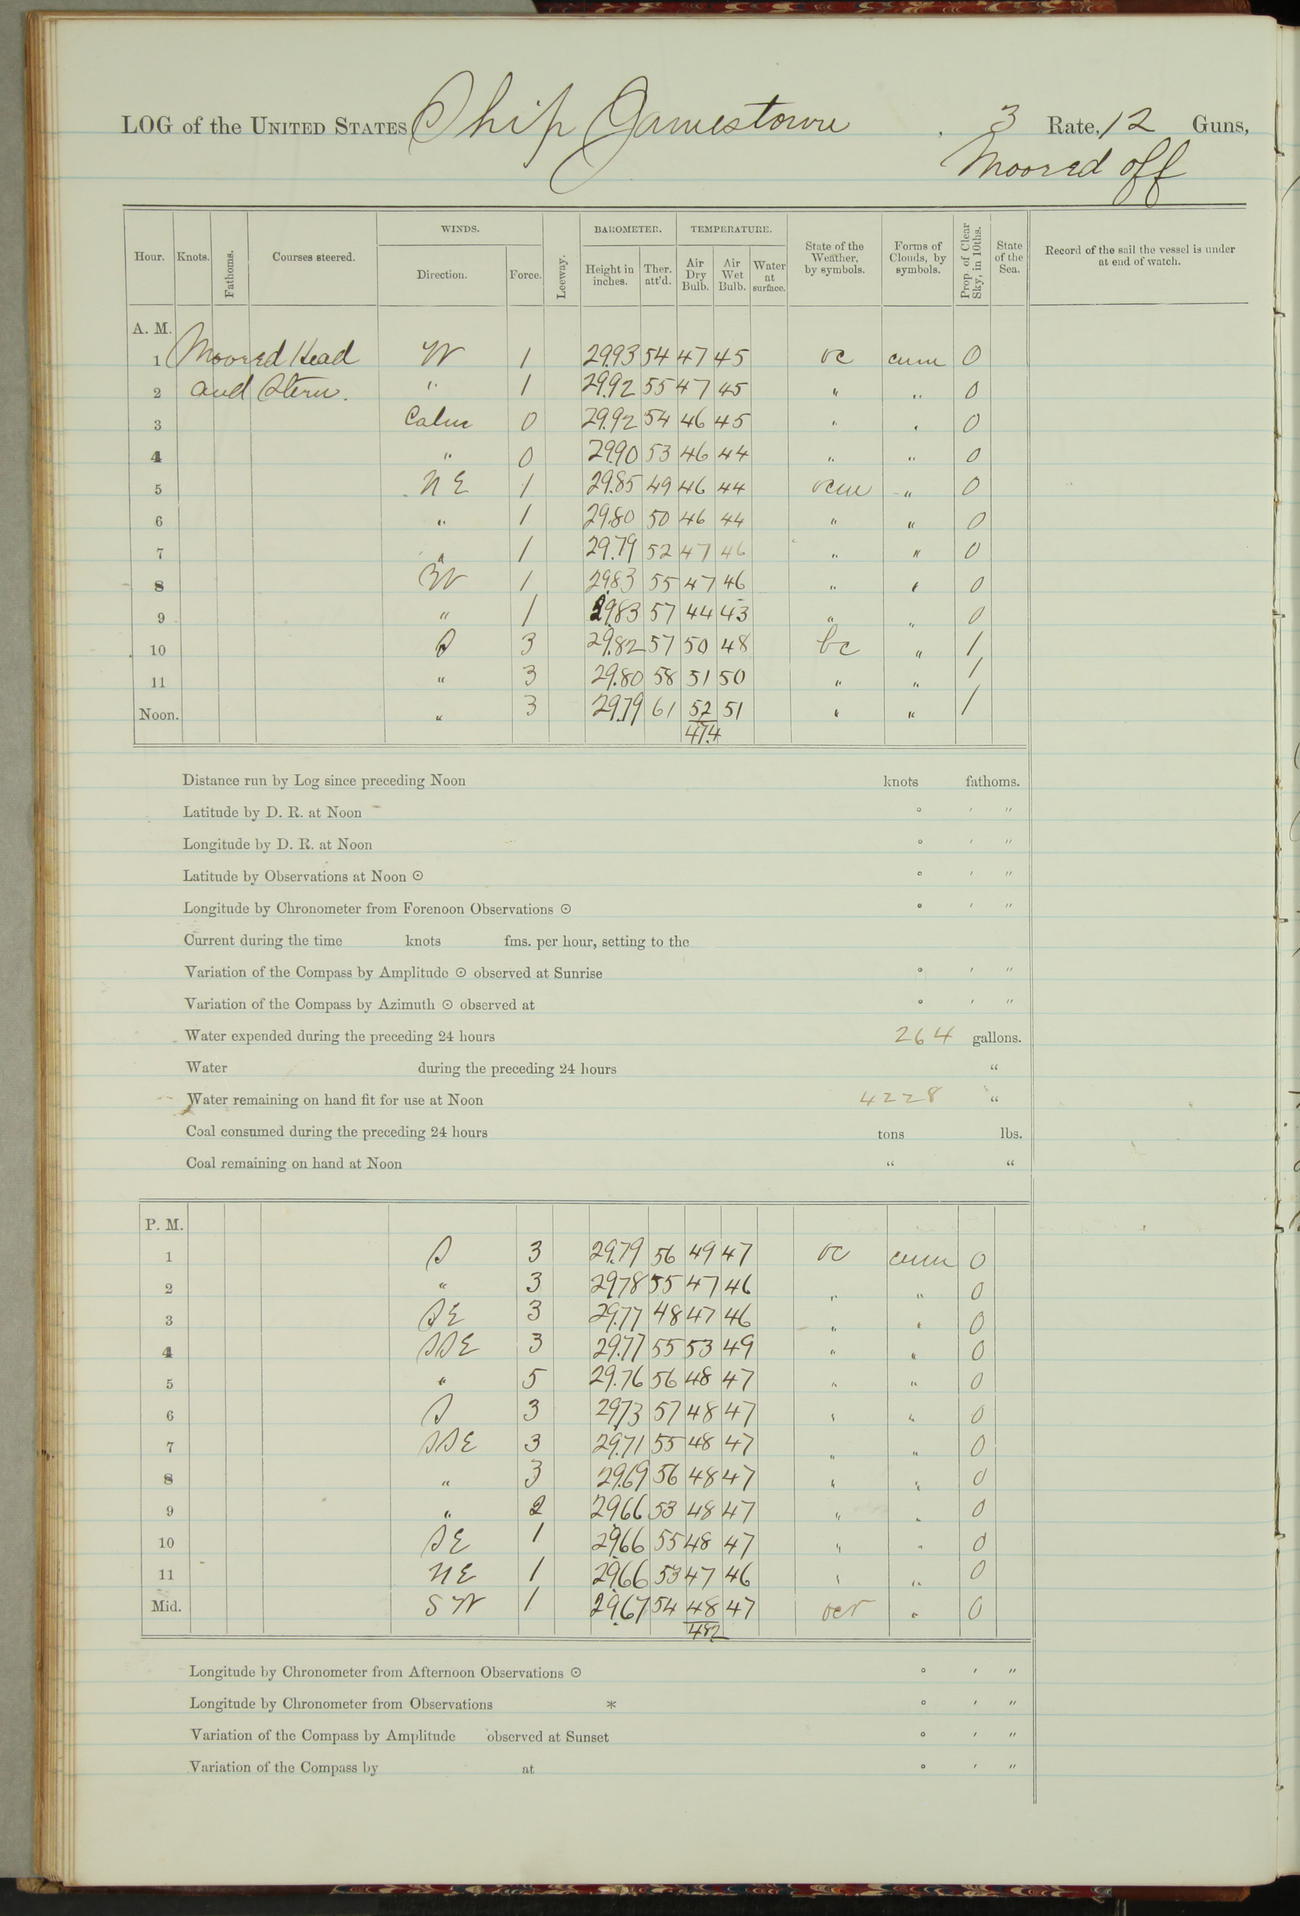 LOG of the UNITED STATES Ship Jamestown, 3 Rate, 12 Guns,
Moored off
Hour. Knots. Fathoms. Courses steered. WINDS. Direction. Force. Leeway. BAROMETER. Height in inches. Ther. att'd. TEMPERATURE. Air Dry Bulb. Air Wet Bulb. Water at surface. State of the Weather, by symbols. Forms of Clouds, by symbols. Prop. of Clear Sky, in 10ths. State of the Sea. Record of the sail the vessel is under at end of watch.
A. M.
1 Moored Head W 1 29.93 54 47 45 oc cum 0
2 and Stern. " 1 29.92 55 47 45 " " 0
3 Calm 0 29.92 54 46 45 " " 0
4 " 0 29.90 53 46 44 " " 0
5 NE 1 29.85 49 46 44 ocm " 0
6 " 1 29.80 50 46 44 " " 0
7 " 1 29.79 52 47 46 " " 0
8 W 1 29.83 55 47 46 " " 0
9 " 1 29.83 57 44 43 " " 0
10 S 3 29.82 57 50 48 bc " 1
11 " 3 29.80 58 51 50 " " 1
Noon. " 3 29.79 61 52 51 " " 1
47.4
Distance run by Log since preceding Noon knots fathoms.
Latitude by D. R. at Noon ° ′ ″
Longitude by D. R. at Noon ° ′ ″
Latitude by Observations at Noon ⊙ ° ′ ″
Longitude by Chronometer from Forenoon Observations ⊙ ° ′ ″
Current during the time knots fms. per hour, setting to the
Variation of the Compass by Amplitude ⊙ observed at Sunrise ° ′ ″
Variation of the Compass by Azimuth ⊙ observed at ° ′ ″
Water expended during the preceding 24 hours 264 gallons.
Water during the preceding 24 hours "
Water remaining on hand fit for use at Noon 4228 "
Coal consumed during the preceding 24 hours tons lbs.
Coal remaining on hand at Noon " "
P. M.
1 S 3 29.79 56 49 47 oc cum 0
2 " 3 29.78 55 47 46 " " 0
3 SE 3 29.77 48 47 46 " " 0
4 SSE 3 29.77 55 53 49 " " 0
5 " 5 29.76 56 48 47 " " 0
6 S 3 29.73 57 48 47 " " 0
7 SSE 3 29.71 55 48 47 " " 0
8 " 3 29.69 56 48 47 " " 0
9 " 2 29.66 53 48 47 " " 0
10 SE 1 29.66 55 48 47 " " 0
11 NE 1 29.66 53 47 46 " " 0
Mid. SW 1 29.67 54 48 47 ocr " 0
482
Longitude by Chronometer from Afternoon Observations ⊙ ° ′ ″
Longitude by Chronometer from Observations * ° ′ ″
Variation of the Compass by Amplitude observed at Sunset ° ′ ″
Variation of the Compass by at ° ′ ″